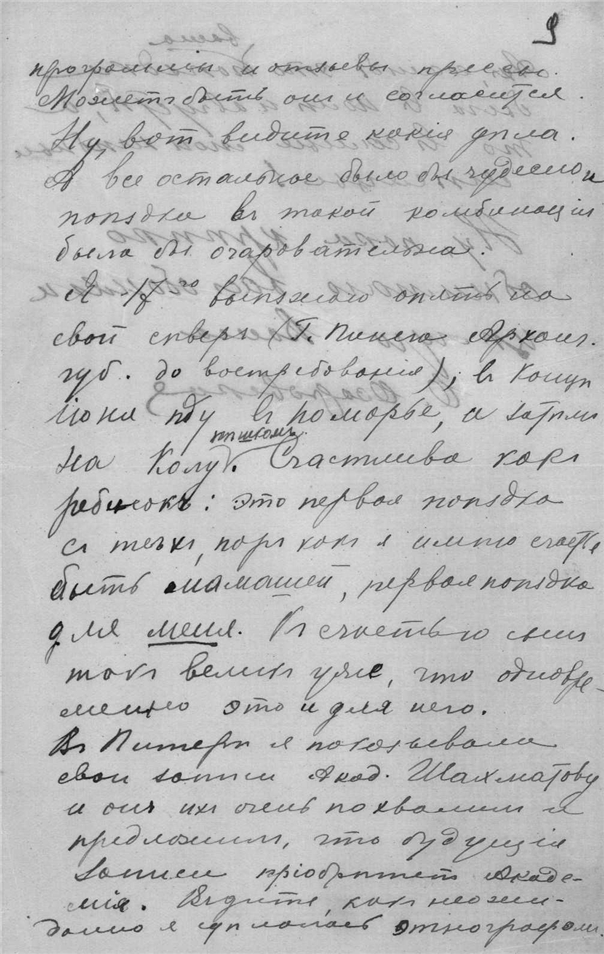 9
ваша
программы и отзывы прессы.
Можетъ быть они и согласятся.
Ну, вот видите какія дѣла.
А все остальное было бы чудесно и
поѣздка въ такой комбинаціи
была бы очаровательна.
А 17го выѣзжаю опять на
свой северъ Г. Пинега Арханг.
губ. до востребованія), въ концѣ
Іюня иду въ поморье, а затѣмъ
на Колу пѣшкомъ. Счастлива какъ
ребенокъ: это первая поѣздка
съ тѣхъ поръ какъ я имѣю счастье
быть мамашей, первая поѣздка
для меня. Къ счастью сынъ
такъ великъ уже, что одновре-
менно это и для него.
Въ Питерѣ я показывала
свои записи Акад. Шахматову
и онъ ихъ очень похвалилъ и
предложилъ, что будущія
записи пріобрѣтетъ Акаде-
мія. Видите, какъ неожи-
данно я сдѣлалась этнографомъ.